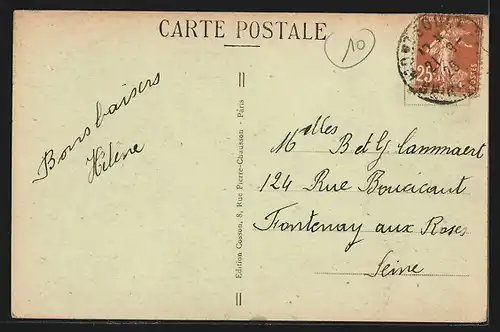 CARTE POSTALE
10
25
POSTES
Bons baisers
Hélène
Edition Cosson, 8, Rue Pierre-Chausson - Paris
Melles B et G Cammaert
124 Rue Boucicaut
Fontenay aux Roses
Seine